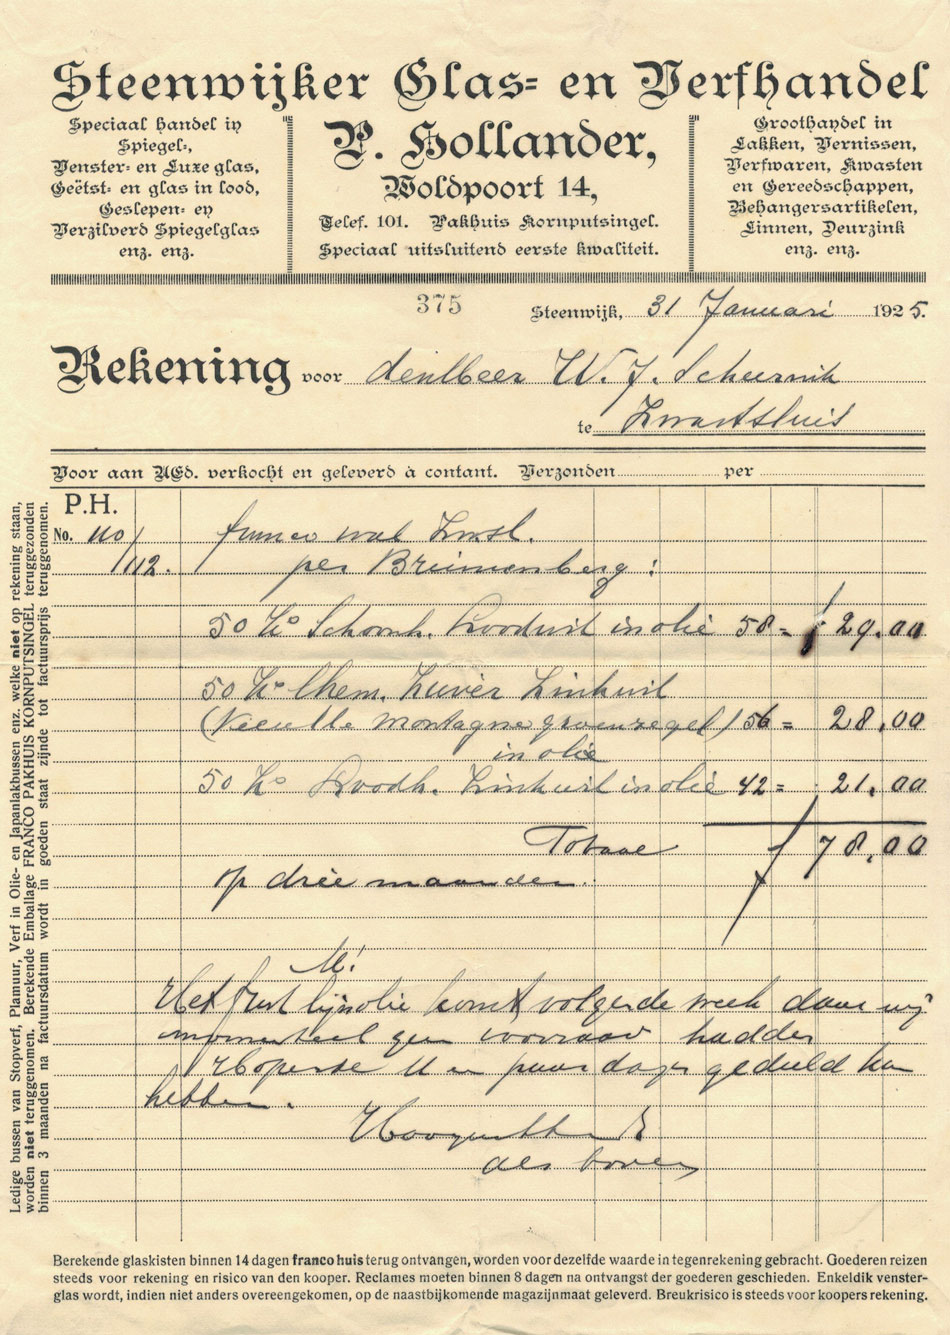 Steenwijker Glas- en Verfhandel
Speciaal handel in
Spiegel-,
Venster- en Luxe glas,
Geëtst- en glas in lood,
Geslepen- en
Verzilverd Spiegelglas
enz. enz.
P. Hollander,
Woldpoort 14,
Telef. 101. Pakhuis Kornputsingel.
Speciaal uitsluitend eerste kwaliteit.
Groothandel in
Lakken, Vernissen,
Verfwaren, Kwasten
en Gereedschappen,
Behangersartikelen,
Linnen, Deurzink
enz. enz.
375
Steenwijk, 31 Januari 1925.
Rekening voor den Heer W. J. Scheernik
te Zwartsluis
Voor aan UEd. verkocht en geleverd à contant. Verzonden per
P.H.
No. 110/ franco wal Zwsl.
/112. per Bruinenberg:
50 Ko Schoonh. Loodwit in olie 58 = f 29.00
50 Ko Chem. Zuiver Zinkwit
(Vieille Montagne groenzegel) 56 = 28.00
in olie
50 Ko Loodh. Zinkwit in olie 42 = 21.00
Totaal f 78.00
op drie maanden.
M!
Het fust lijnolie komt volgende week daar wij
momenteel geen voorraad hadden
Hopende U een paar dagen geduld kan
hebben.
Hoogachtend
als boven
Ledige bussen van Stopverf, Plamuur, Verf in Olie- en Japanlakbussen enz. welke niet op rekening staan,
worden niet teruggenomen. Berekende Emballage FRANCO PAKHUIS KORNPUTSINGEL teruggezonden
binnen 3 maanden na factuursdatum wordt in goeden staat zijnde tot factuursprijs teruggenomen.
Berekende glaskisten binnen 14 dagen franco huis terug ontvangen, worden voor dezelfde waarde in tegenrekening gebracht. Goederen reizen
steeds voor rekening en risico van den kooper. Reclames moeten binnen 8 dagen na ontvangst der goederen geschieden. Enkeldik venster-
glas wordt, indien niet anders overeengekomen, op de naastbijkomende magazijnmaat geleverd. Breukrisico is steeds voor koopers rekening.